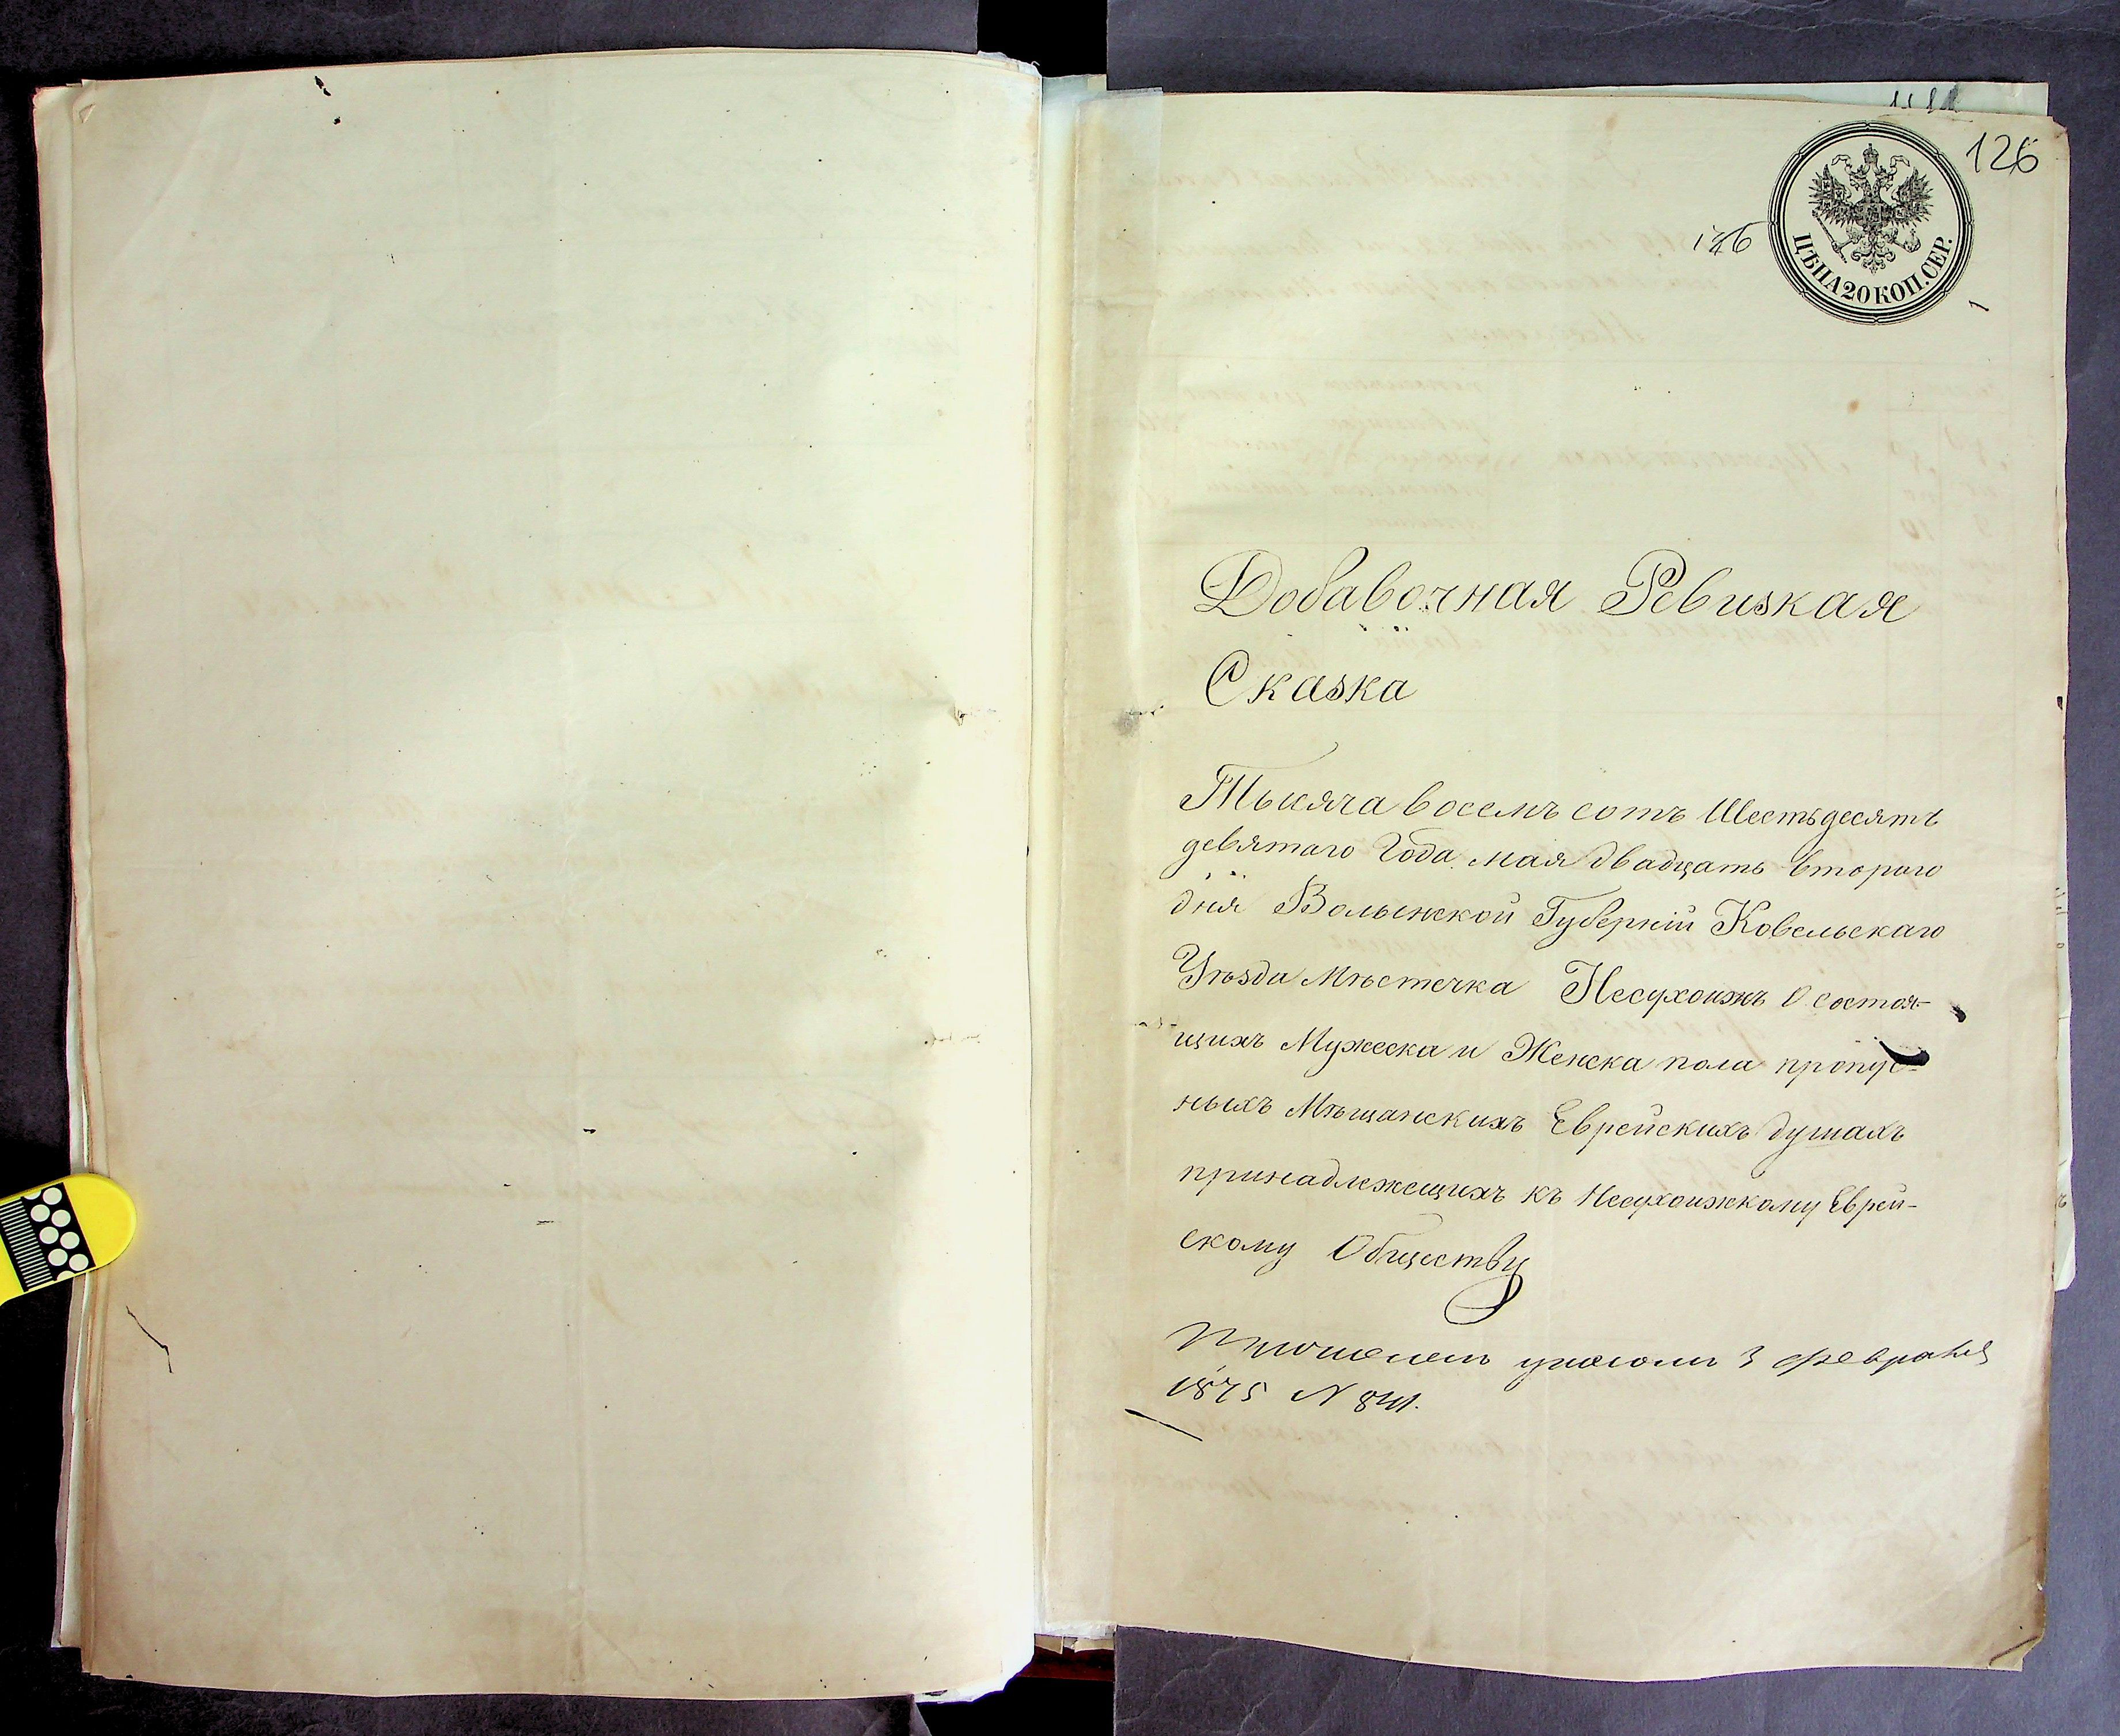 126
176
ЦѢНА 20 КОП. СЕР.
Добавочная Ревизкая
Сказка
Тысяча восемь сотъ Шестьдесятъ
девятаго Года мая двадцать втораго
дня Волынской Губерніи Ковельскаго
Уѣзда Мѣстечка Несухоижъ О состоя-
щихъ Мужеска и Женска пола пропус-
ныхъ Мѣщанскихъ Еврейскихъ душахъ
принадлежещихъ къ Несухоижкому Еврей-
скому Обществу
3 февраля
1875 N 841.